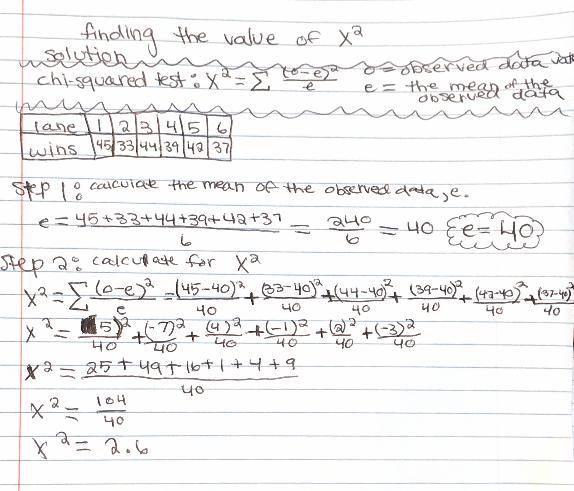 finding the value of x²
solution
chi-squared test: x² = Σ (o-e)²/e o = observed data
e = the mean of the observed data
lane 1 2 3 4 5 6
wins 45 33 44 39 42 37
Step 1: calculate the mean of the observed data, e.
e = 45+33+44+39+42+37/6 = 240/6 = 40 e = 40
Step 2: calculate for x²
x² = Σ (o-e)²/e = (45-40)²/40 + (33-40)²/40 + (44-40)²/40 + (39-40)²/40 + (42-40)²/40 + (37-40)²/40
x² = (5)²/40 + (-7)²/40 + (4)²/40 + (-1)²/40 + (2)²/40 + (-3)²/40
x² = 25+49+16+1+4+9/40
x² = 104/40
x² = 2.6